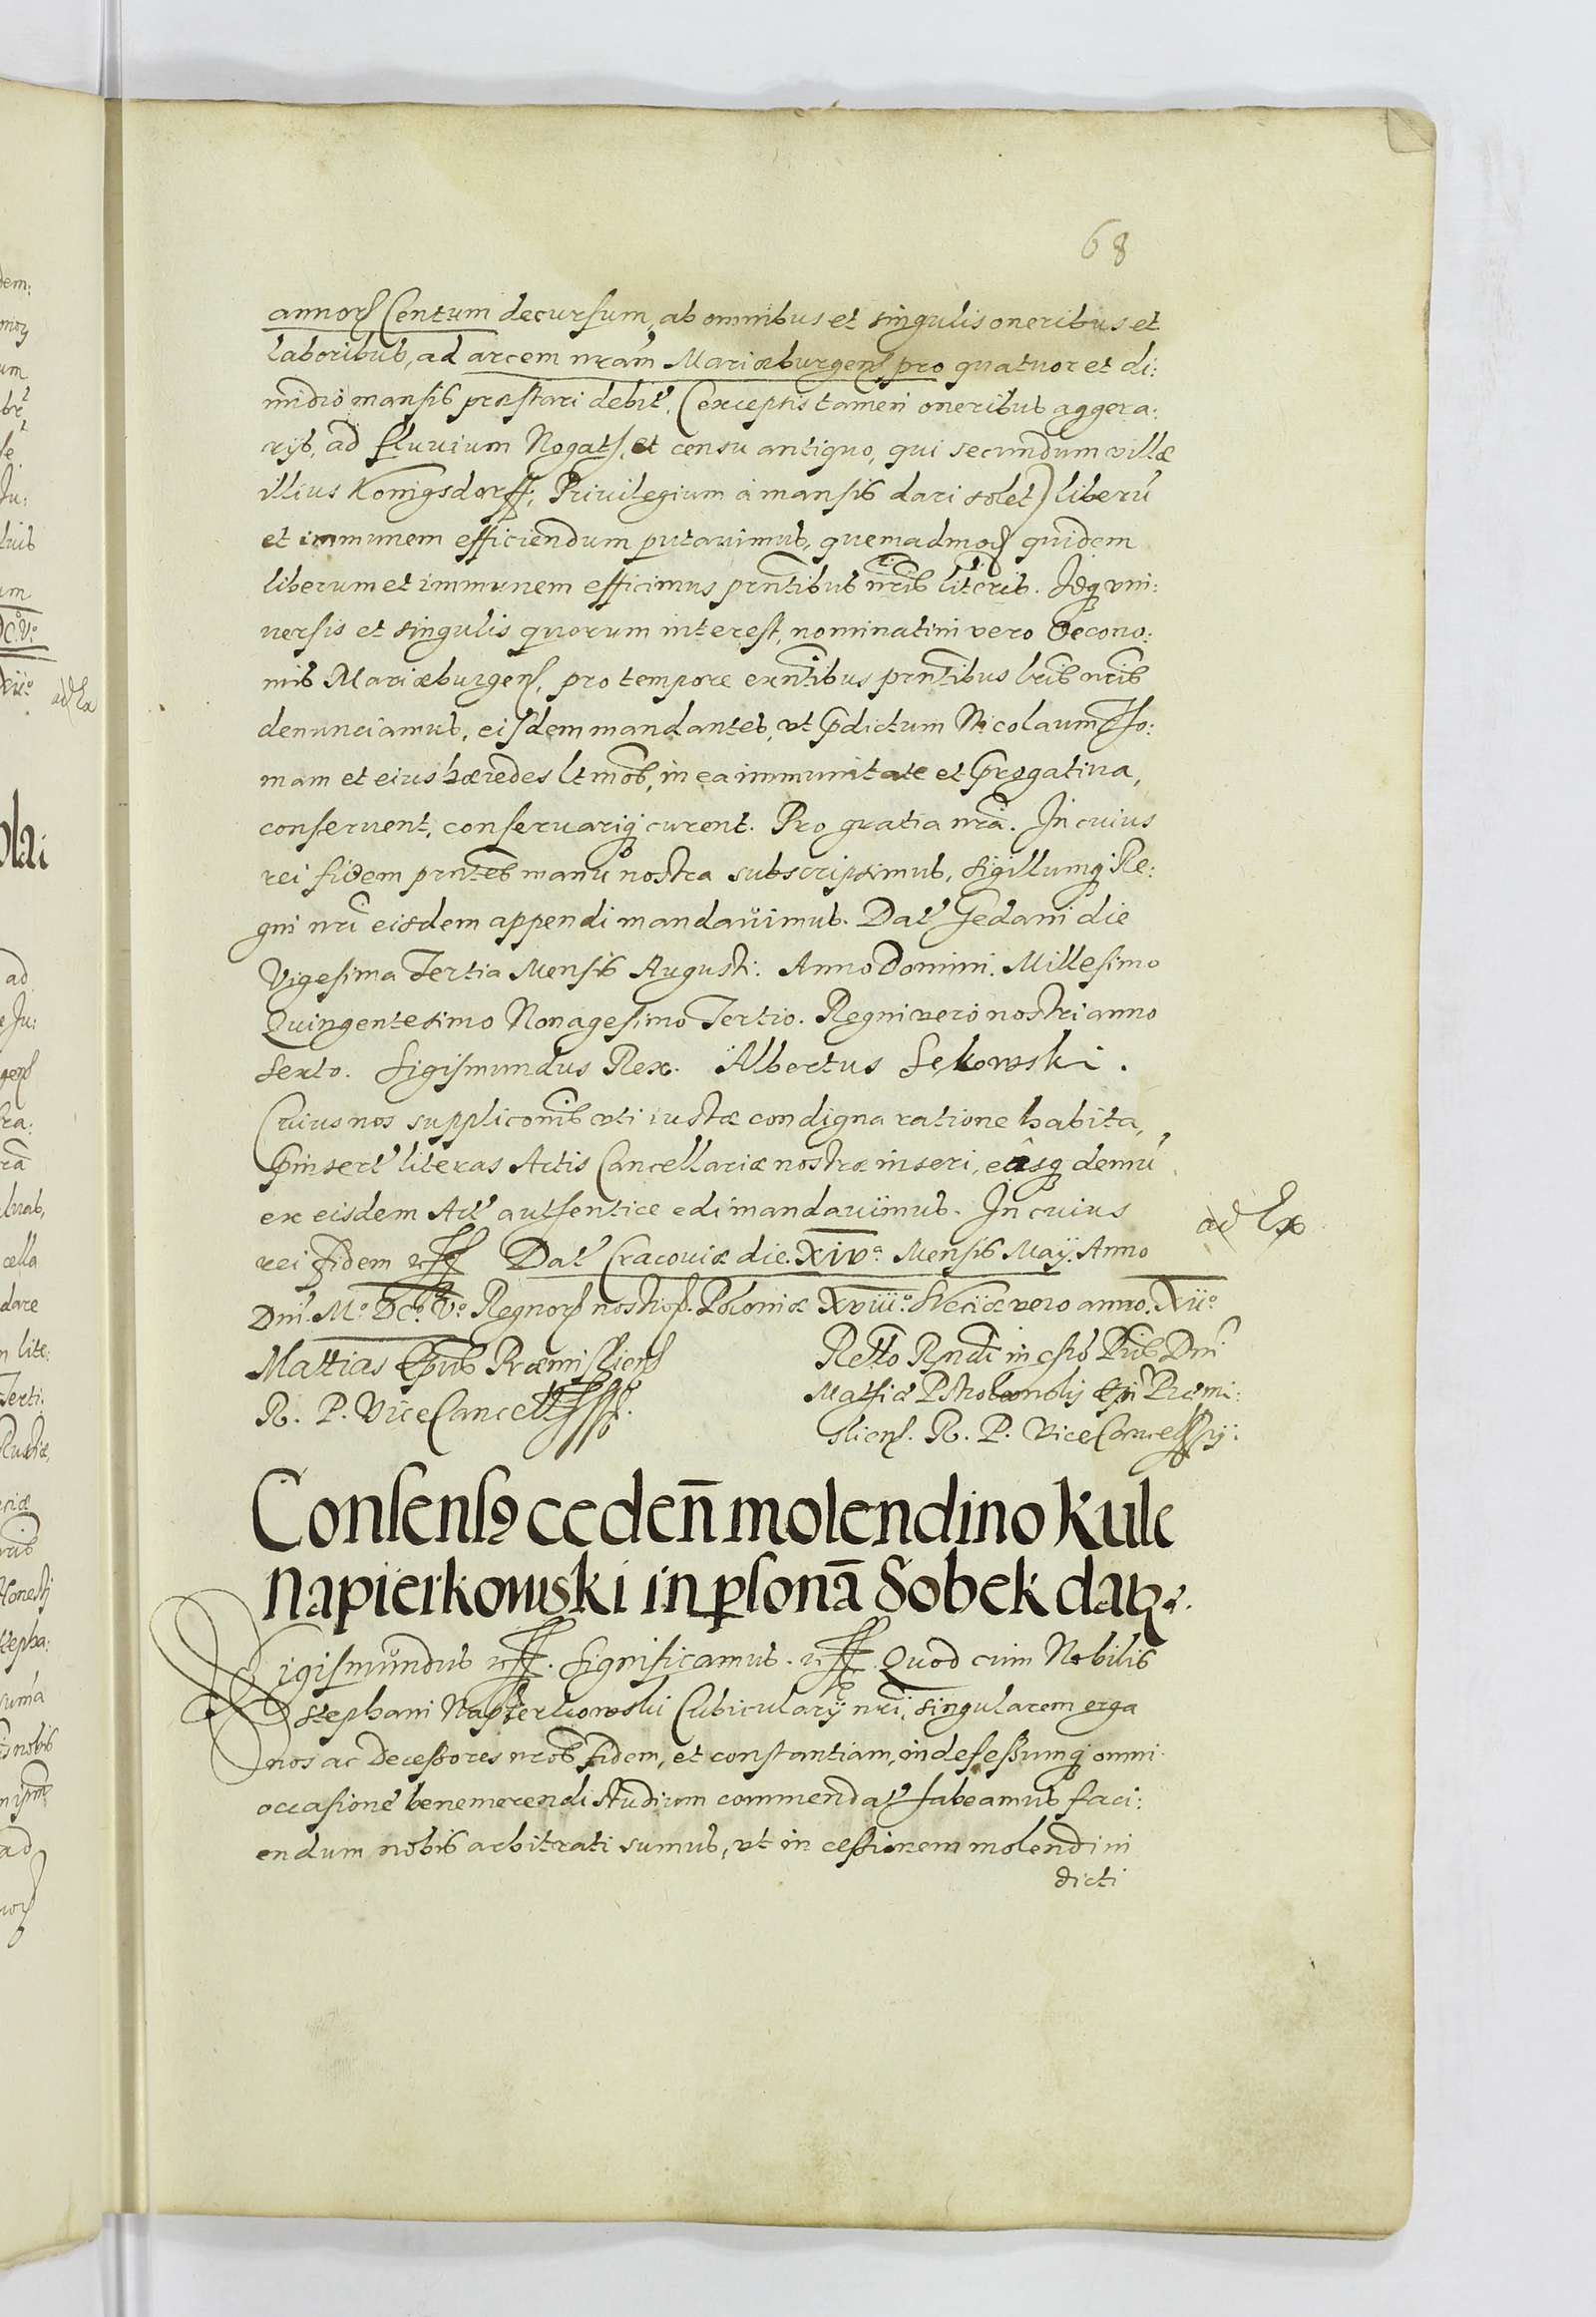 68
annor Centum decursum, ab omnibus et singulis oneribus et
laboribus, ad arcem nrãm Mariæburgens pro quatuor et di:
midio mansis præstari debit. (exceptis tamen oneribus aggera:
rijs, ad fluvium Nogats, et censu antiquo, qui secundum villæ
illius Konigsdorff, Privilegium à mansis dari solet) liberũ
et immunem efficiendum putavimus, quemadmod quidem
liberum et immunem efficimus pñtibus nr̃is literis. Idq vni:
uersis et singulis quorum interest, nominatim vero Oecono:
mis Mariæburgens, pro tempore exñtibus prñtibus lr̃is nr̃is
denunciamus, eisdem mandantes, vt prdictum Nicolaum Tho:
mam et eius hæredes ltmos, in ea immunitate et prrogatiua,
conseruent, conseruariq curent. Pro gratia nrã. In cuius
rei fidem prñtes manu nostra subscripsimus, sigillumq Re:
gni nr̃i eisdem appendi mandauimus. Dat Gedani die
Vigesima Tertia Mensis Augusti. Anno Domini. Millesimo
Quingentesimo Nonagesimo Tertio. Regni vero nostri anno
sexto. Sigismundus Rex. Albertus Sękowski.
Cuius nos supplicõnib vti iustæ condigna ratione habita,
prinsert literas Actis Cancellariæ nostræ inseri, eâsq demũ
ex eisdem Act authentice edi mandauimus. In cuius
ad Ex
rei fidem etc Dat Cracouiæ die XIVa Mensis Maij. Anno
Dni. Mo. DCo. Vo. Regnor nostror. Poloniæ XVIIIo. Sveciæ vero anno. XIIo.
Mattias Epus Præmisliens
R. P. ViceCancell
Rello Rñdi in Chro Pris Dni
Mathiæ Pstrokonskij Epi Præmi:
sliens. R. P. ViceCancellrij:
Consens9 cedeñ molendino Kule
Napierkowski in p̱sonã Sobek datꝫ.
Sigismundus etc. Significamus. etc Quod cum Nobilis
Stephani Napierkowski Cubicularij nr̃i, singularem erga
nos ac Decessores nros fidem, et constantiam, indefessumq omni
occasione benemerendi studium commendat habeamus faci:
endum nobis arbitrati sumus, vt in cessionem molendini
dicti